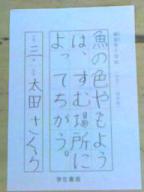 魚の色やもよう
は、すむ場所に
よってちがう。
三 太田さくら
学生書道